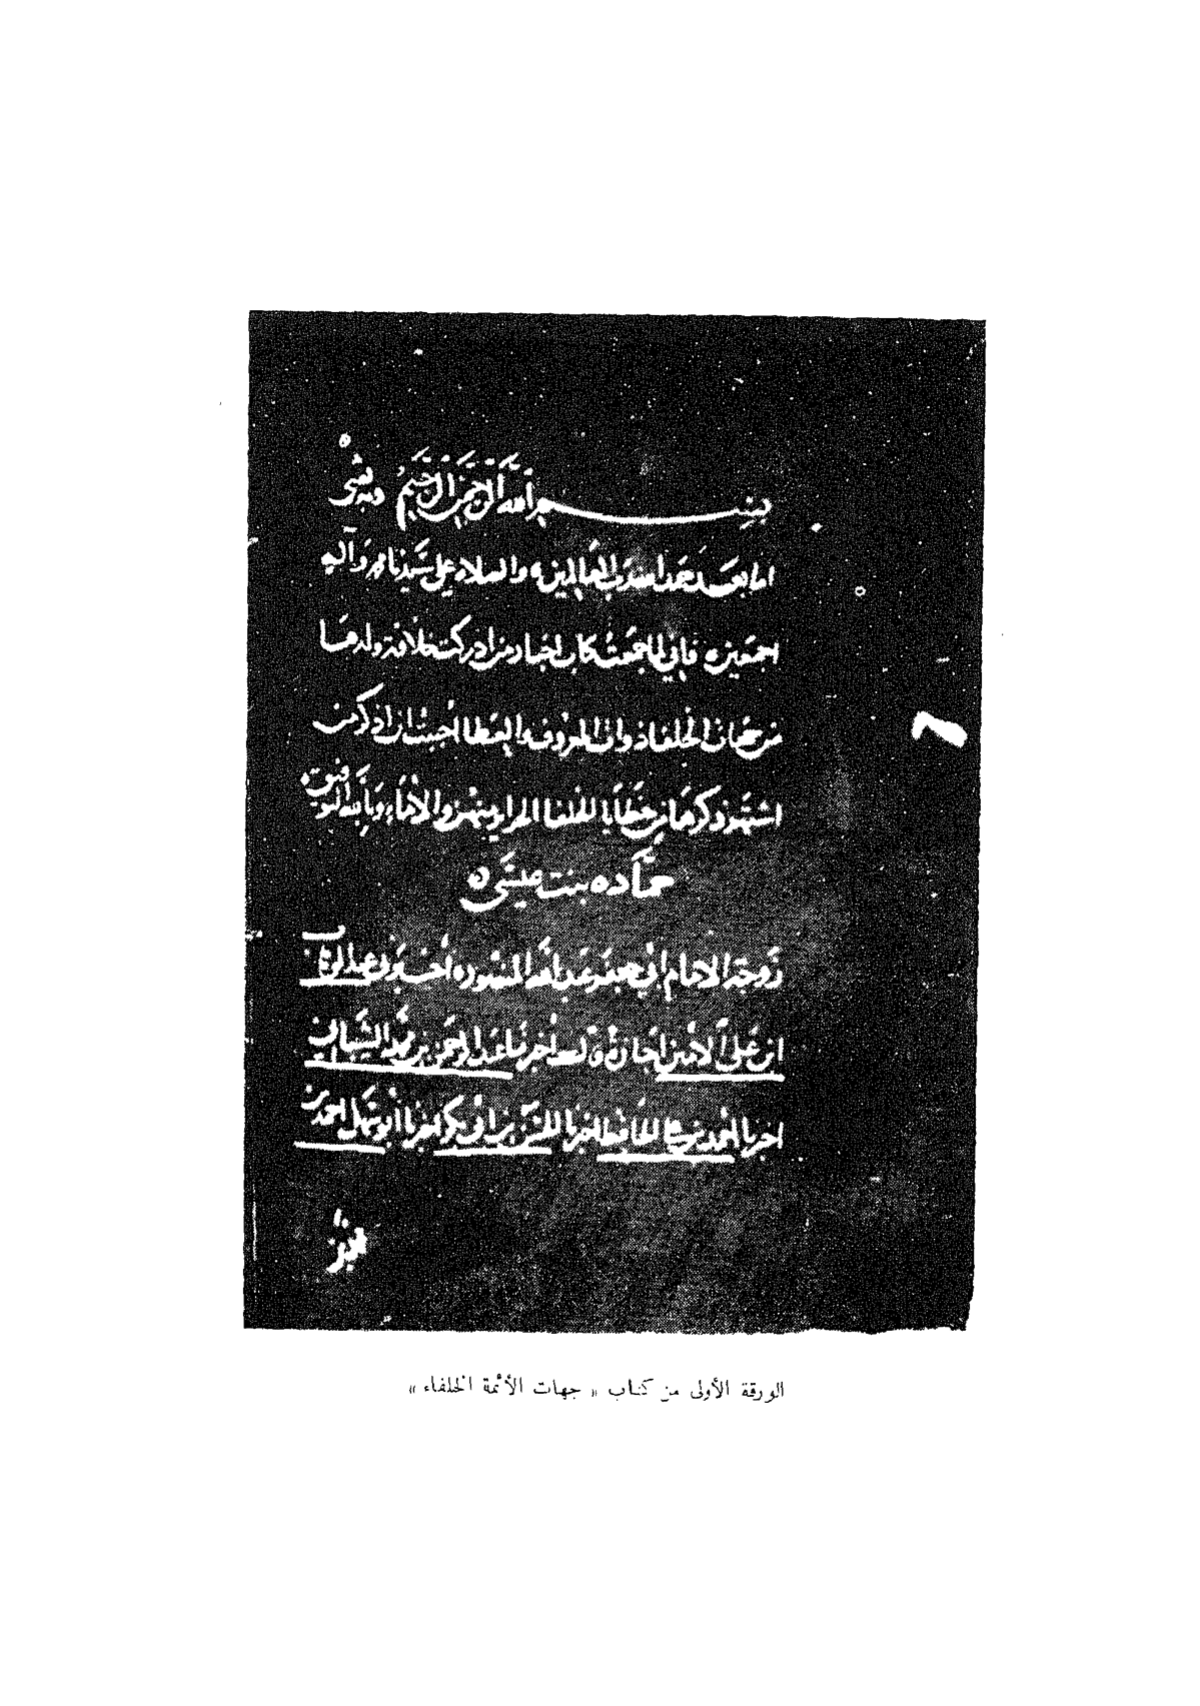 بسم الله الرحمن الرحيم وبه ثقتي
اما بعد حمد الله رب العالمين والصلاة على سيدنا محمد وآله
اجمعين فإني لما جمعت كتاب اخبار من ادركت خلافة ولدها
من جهات الخلفاء ذوات المعروف والعطا أحببت ان اذكر من
اشتهر ذكرها من حظايا الخلفا الحراير منهن والاماء وبالله التوفيق
حمادة بنت عيسى
زوجة الامام ابي جعفر عبد الله المنصور أخبرني عبد الوهاب
ابن علي الأمين اجازة قال اخبرنا عبد الرحمن بن محمد الشيباني
اخبرنا أحمد بن علي الحافظ اخبرنا الحسن بن أبي بكر اخبرنا أبو سهل احمد بن
الورقة الأولى من كتاب « جهات الأئمة الخلفاء »